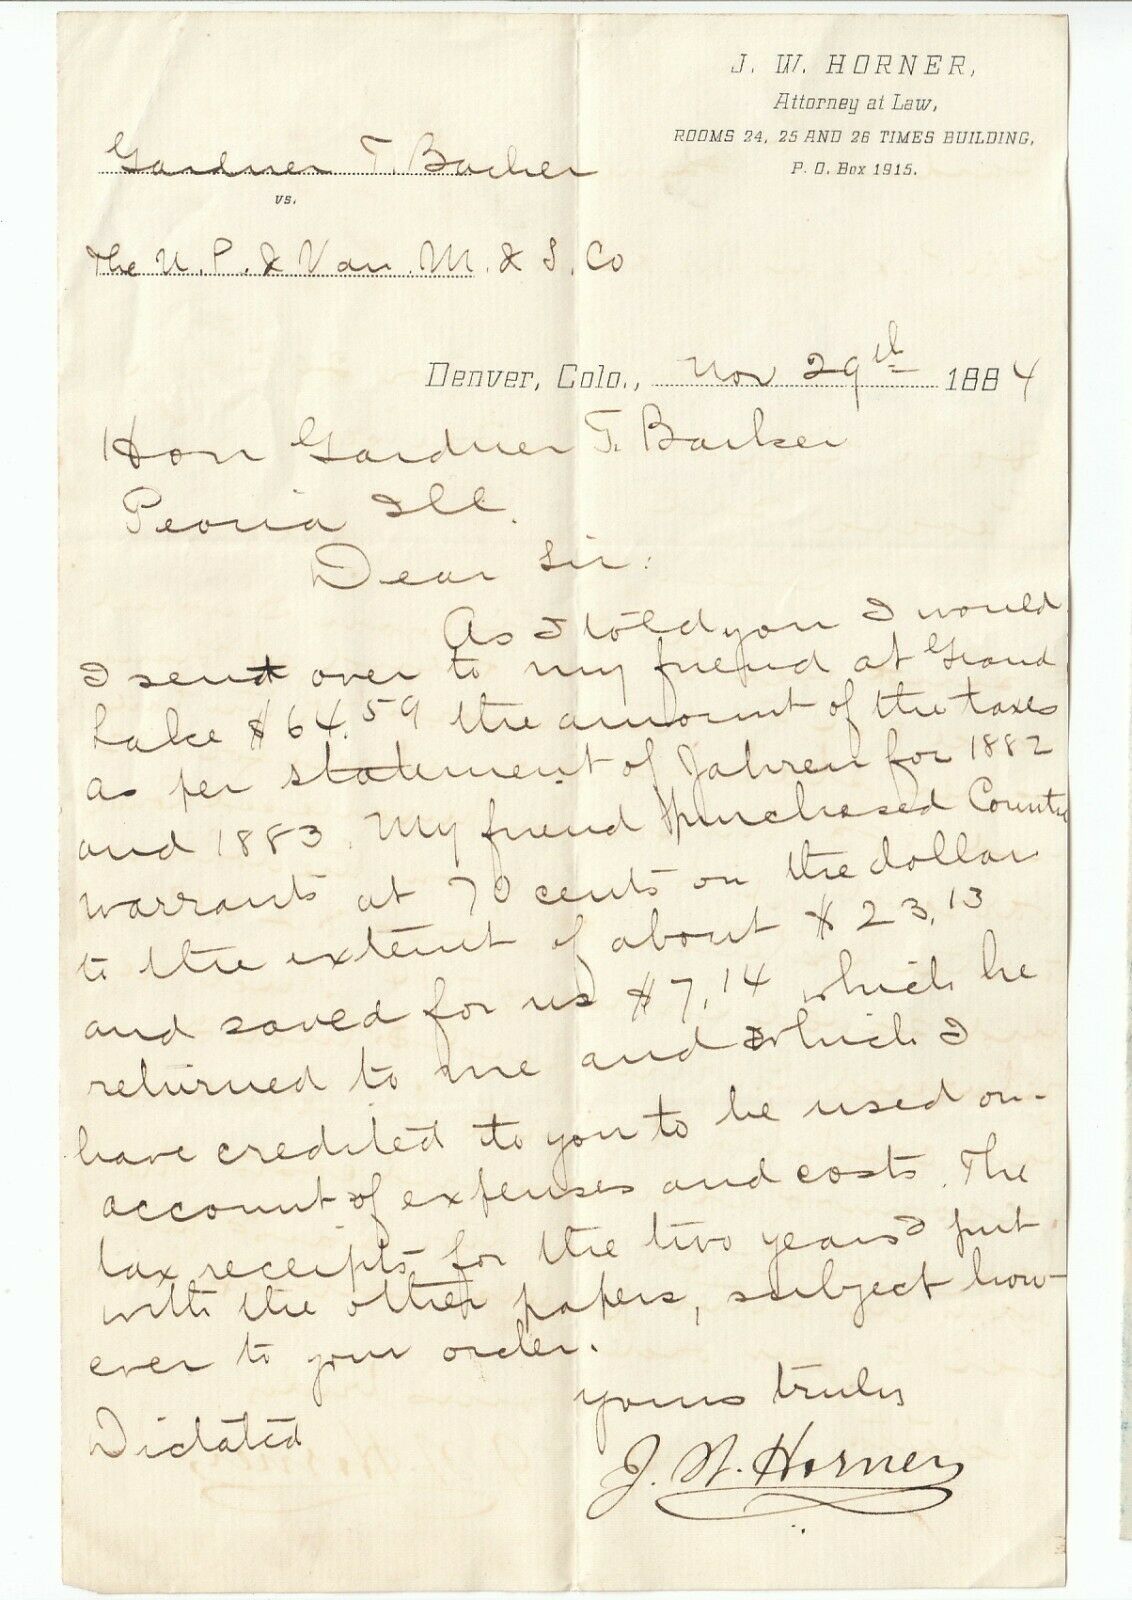 J. W. HORNER,
Attorney at Law,
ROOMS 24, 25 AND 26 TIMES BUILDING,
P. O. Box 1915.
Gardner T. Barker
vs.
The N. P. & Van. M. & S. Co
Denver, Colo., Nov 29th 1884
Hon Gardner T. Barker
Peoria Ill.
Dear Sir:
As I told you I would
I sent over to my friend at Grand
Lake $64.59 the amount of the taxes
as per statement of for 1882
and 1883. My friend purchased County
warrants at 70 cents on the dollar
to the extent of about $23.13
and saved for us $7.14 which he
returned to me and which I
have credited to you to be used on
account of expenses and costs. The
tax receipts for the two years I put
with the other papers, subject how-
ever to your order.
yours truly
Dictated
J. W. Horner